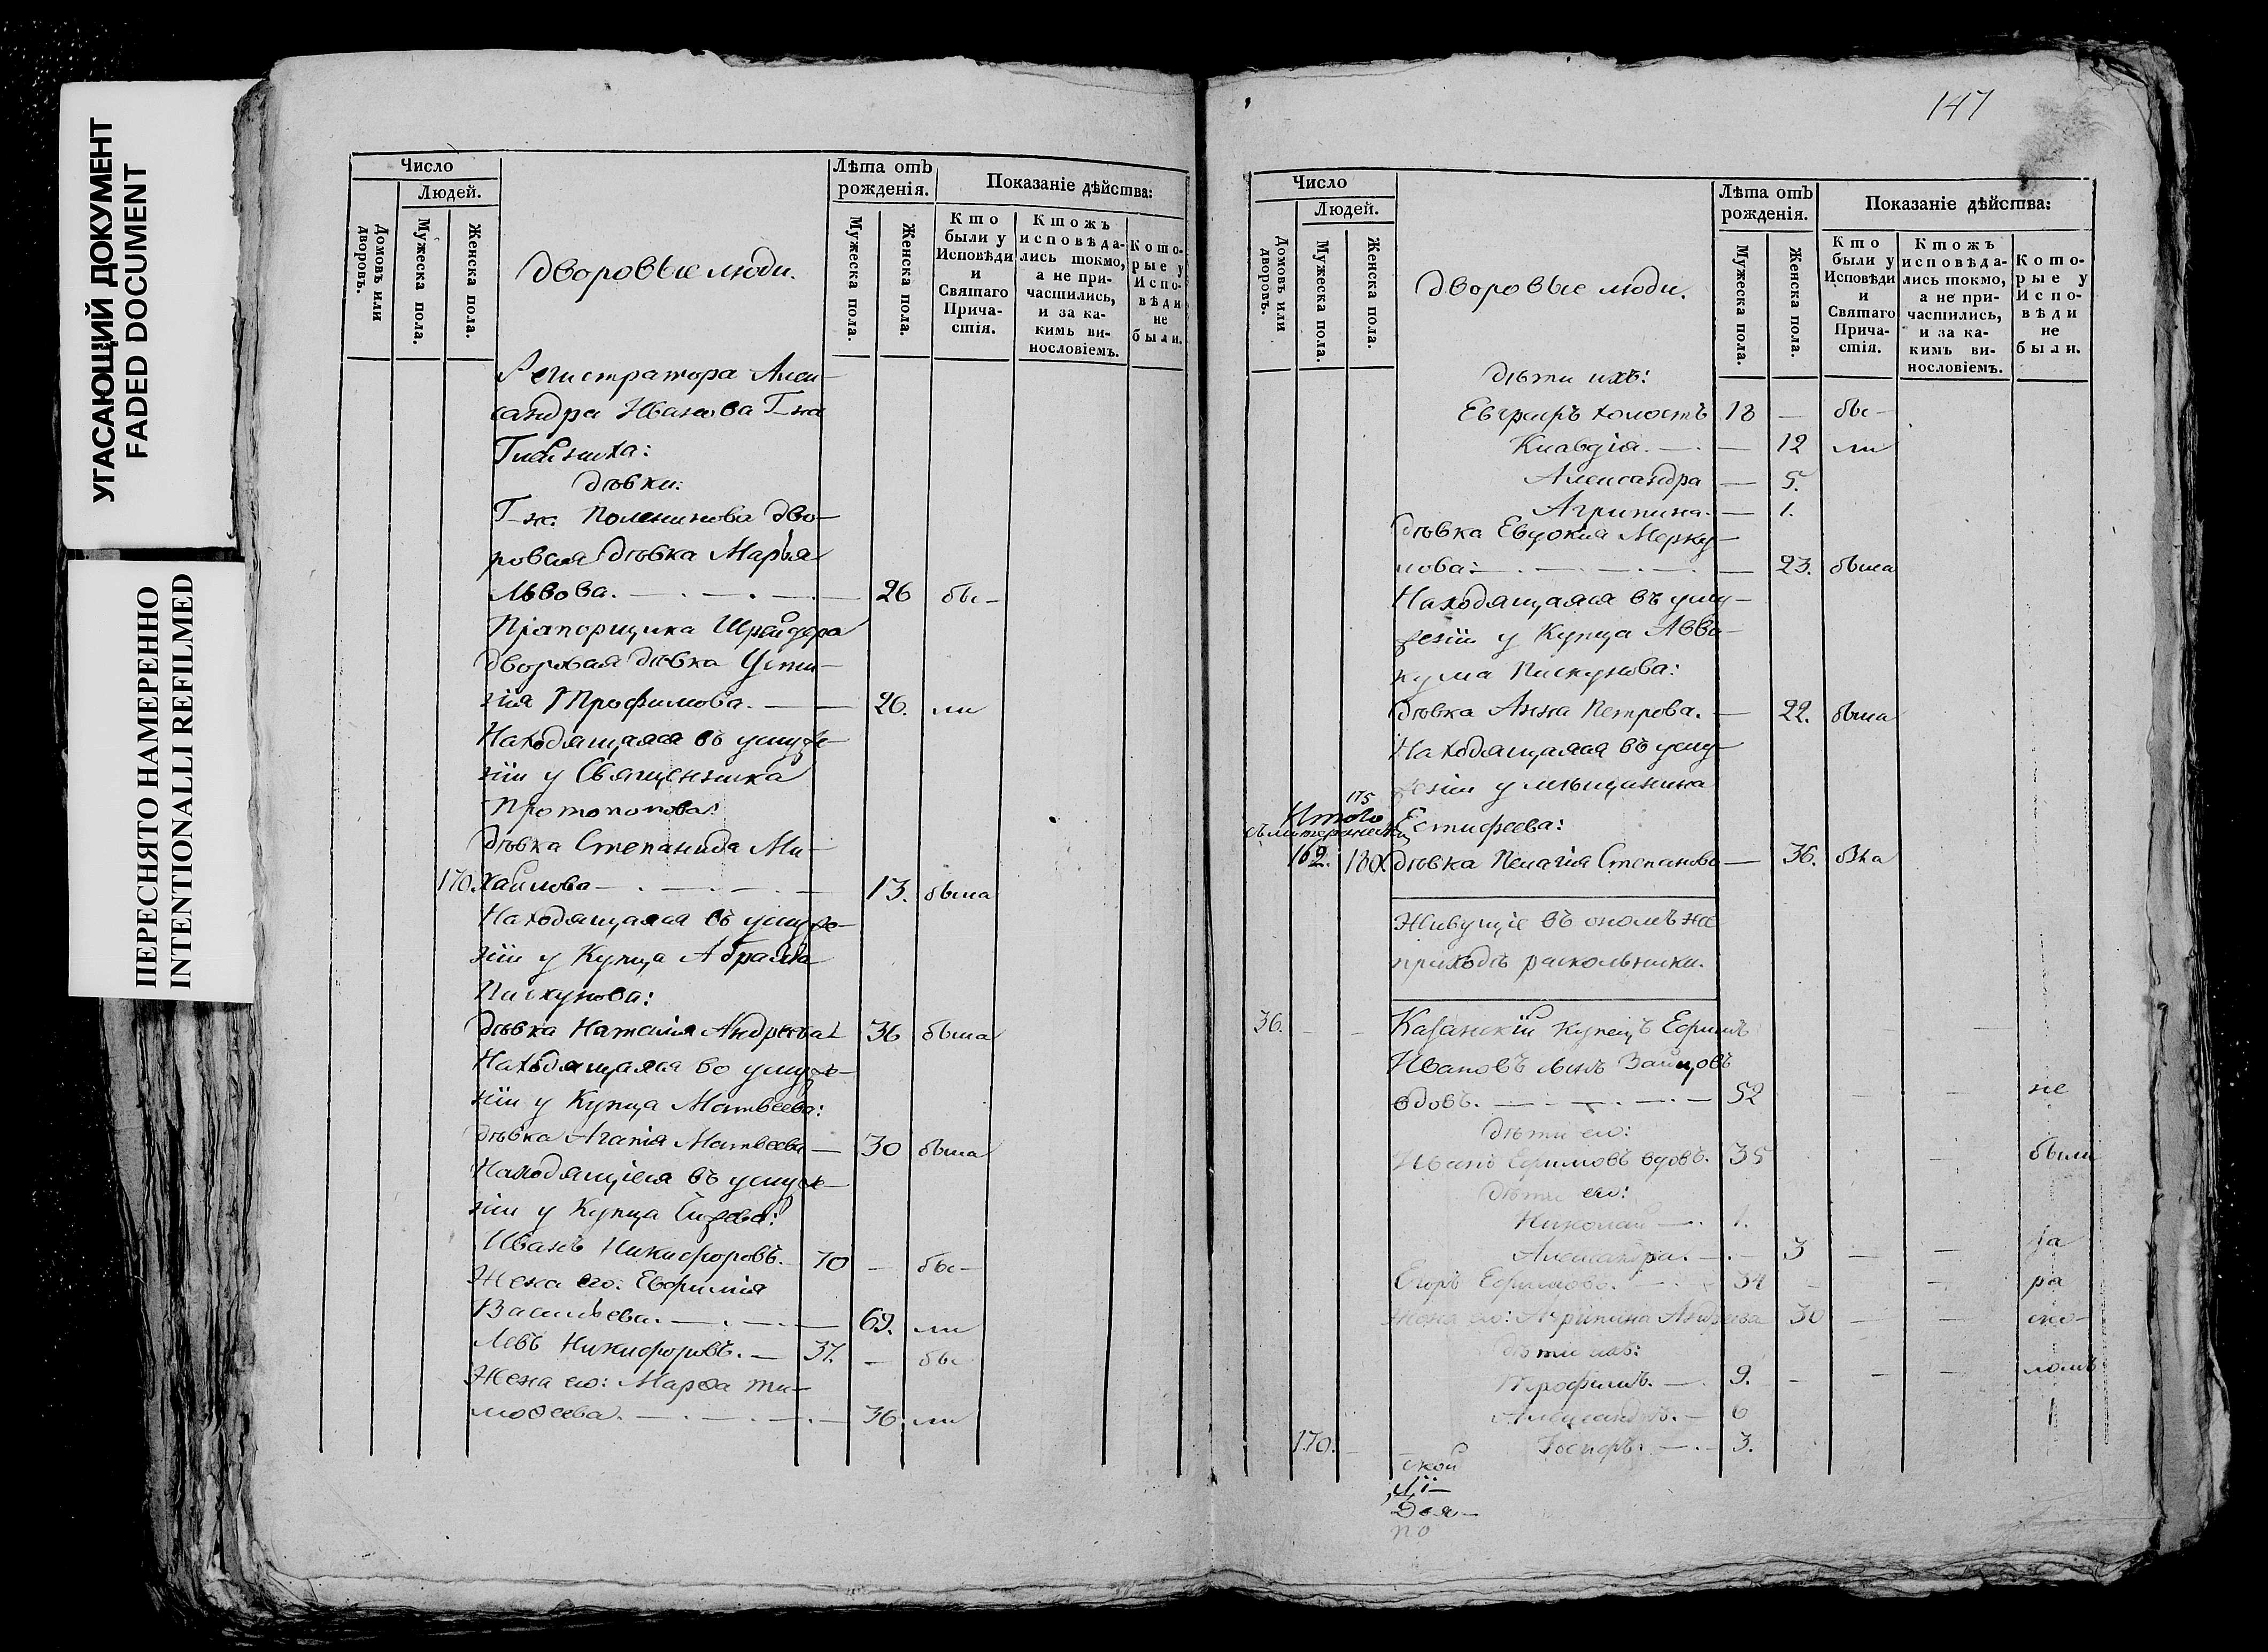 УГАСАЮЩИЙ ДОКУМЕНТ
FADED DOCUMENT
ПЕРЕСНЯТО НАМЕРЕННО
INTENTIONALLI REFILMED
Число
Людей.
Домовъ или дворовъ.
Мужеска пола.
Женска пола.
Дворовые люди.
Лѣта отъ
рожденія.
Мужеска пола.
Женска пола.
Показаніе дѣйства:
Кто были у Исповѣди и Святаго Прича-стія.
Ктожъ исповѣда-лись токмо, а не при-частились, и за ка-кимъ ви-нословіемъ.
Кото-рые у Испо-вѣди не были.
Регистратора Алек-
сандра Иванова Г-на
дѣвки:
Г-жи Поленинова дво-
ровая дѣвка Марья
Львова. 26 бы-
Прапорщика Шрейдера
дворовая дѣвка Усти-
нія Трофимова. 26. ли
Находящаяся въ услуже-
ніи у Священника
Протопопова:
дѣвка Степанида Ми-
170. хайлова 13. была
Находящаяся въ услуже-
ніи у Купца Абрама
Пискунова:
дѣвка Наталія Андреева 36 была
Находящаяся во услуже-
ніи у Купца Матвеева:
дѣвка Агапія Матвеева 30 была
Находящіеся въ услуже-
ніи у Купца
Иванъ Никифоровъ. 70 — бы-
Жена его: Евфимія
Васильева. 69. ли
Левъ Никифоровъ. 37. — бы
Жена его: Марѳа Ти-
моѳеева. 36. ли
147
Число
Людей.
Домовъ или дворовъ.
Мужеска пола.
Женска пола.
Дворовые люди.
Лѣта отъ
рожденія.
Мужеска пола.
Женска пола.
Показаніе дѣйства:
Кто были у Исповѣди и Святаго Прича-стія.
Ктожъ исповѣда-лись токмо, а не при-частились, и за ка-кимъ ви-нословіемъ.
Кото-рые у Испо-вѣди не были.
дѣти ихъ:
Евграфъ холостъ 18 — бы-
Клавдія. — 12 ли
Александра — 5.
Агрипина. — 1.
дѣвка Евдокия Мерку-
лова: — 23. была
Находящаяся въ услу-
женіи у Купца Авва-
кума Пискунова:
дѣвка Анна Петрова. — 22. была
Находящаяся въ услу-
женіи у мѣщанина
175
Итого
Естифеева:
162. 180 дѣвка Пелагія Степанова — 36. была
Живущіе въ ономъ же
приходѣ раскольники.
36. Казанскій купецъ Ефимъ
Ивановъ сынъ Зайцовъ
вдовъ. 52 не
дѣти его:
Иванъ Ефимовъ вдовъ. 35 были
дѣти его:
Николай — 1.
Александра. — 3 за
Егоръ Ефимовъ. 34 ра
Жена его: Агрипина Андреева 30 ско-
дѣти ихъ:
Трофимъ. — 9. ломъ
Александръ. — 6
170. Іосифъ. — 3.
ской
Лі-
Дея-
по